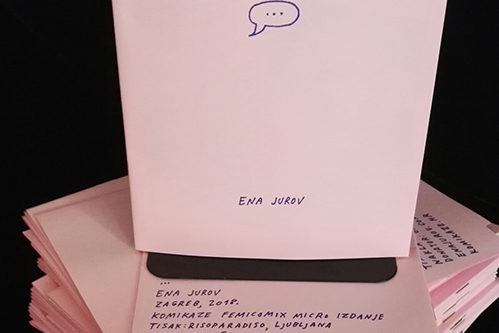 ...
ENA JUROV
...
ENA JUROV
ZAGREB, 2018.
KOMIKAZE FEMICOMIX MICRO IZDANJE
TISAK: RISOPARADISO, LJUBLJANA